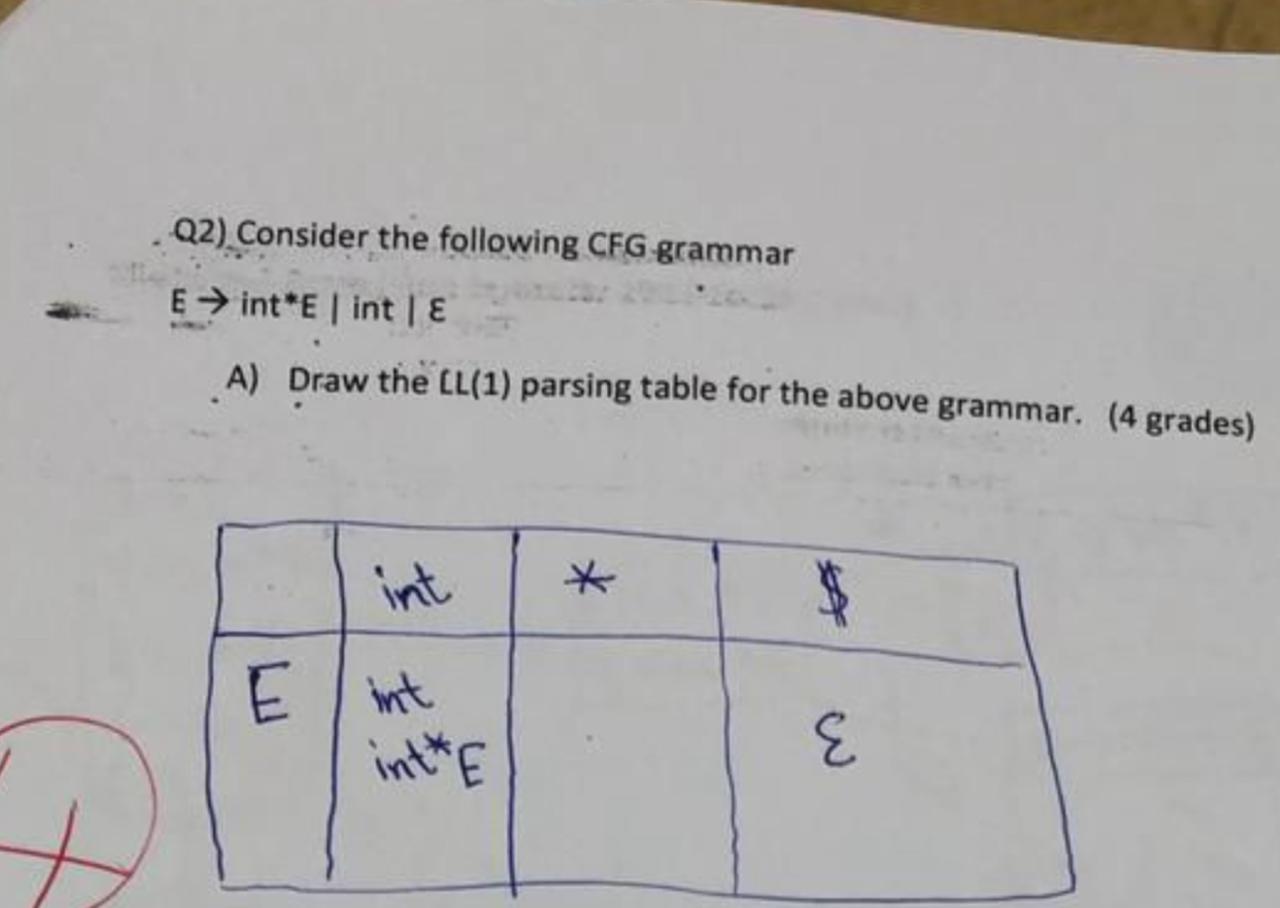 Q2) Consider the following CFG grammar
E → int*E | int | ε
A) Draw the LL(1) parsing table for the above grammar. (4 grades)
int * $
E int ε
int*E